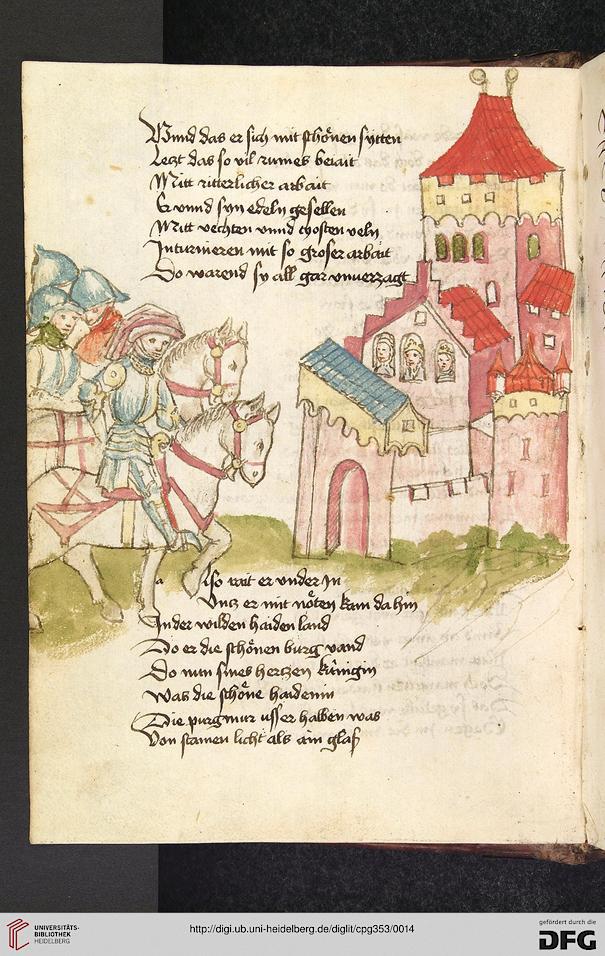 Vnnd das er sich mit schönen sytten
Letzt das so vil rumes beiait
Mitt ritterlicher arbait
Er vnnd syn edeln gesellen
Mitt vechten vnnd thosten veln
In turnieren mit so groser arbait
Do warend sy all gar vnuerzagt
a Also rait er vnder In
Vntz er mit nöten kam da hin
In der wilden haiden land
Do er die schönen burg vand
Do nun sines hertzen küngin
Was die schöne haidenin
Die purgmur vsser halben was
Von stainen licht als ain glaß
UNIVERSITÄTS-
BIBLIOTHEK
HEIDELBERG
http://digi.ub.uni-heidelberg.de/diglit/cpg353/0014
gefördert durch die
DFG